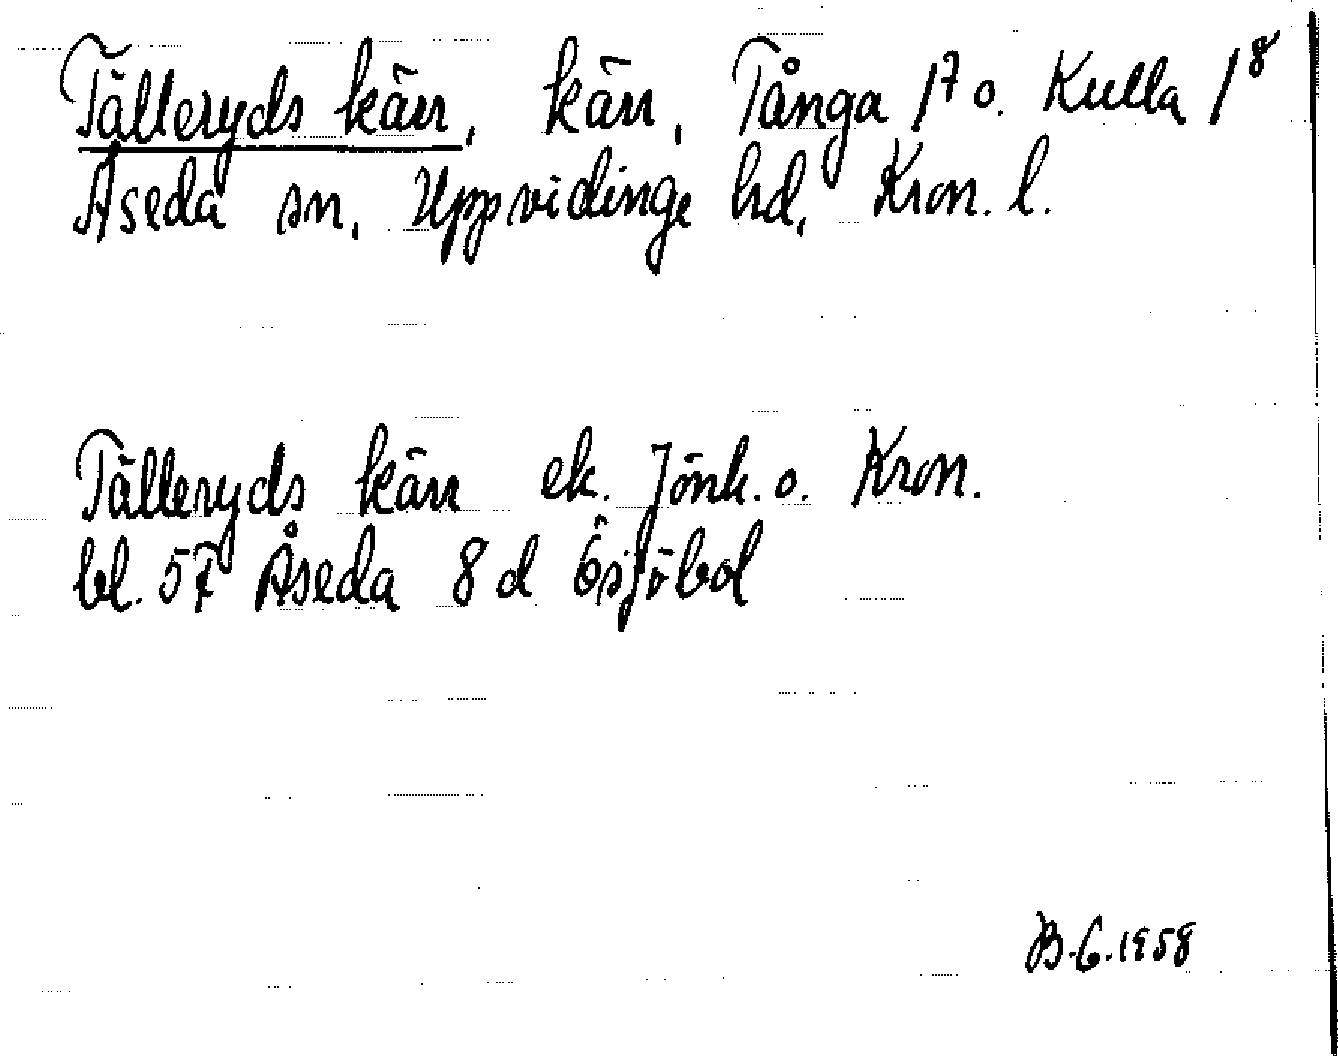 Tälleryds kärr, kärr, Tånga 1⁷ o. Kulla 1⁸
Åseda sn, Uppvidinge hd, Kron. l.
Tälleryds kärr ek. Jönk. o. Kron.
bl. 57 Åseda 8 d Ösjöbol
B.G. 1958